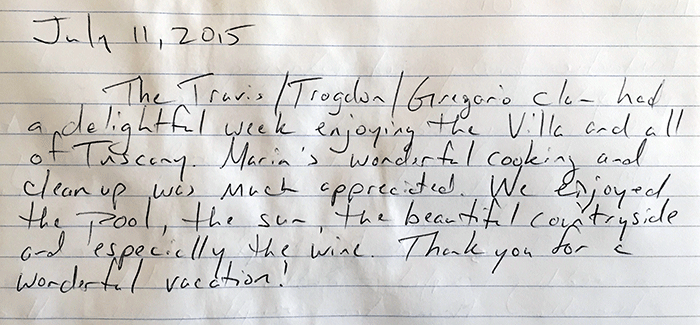 July 11, 2015
The Travis/Trogdon/Gregorio clan had
a delightful week enjoying the Villa and all
of Tuscany. Maria's wonderful cooking and
cleanup was much appreciated. We enjoyed
the pool, the sun, the beautiful countryside
and especially the wine. Thank you for a
wonderful vacation!